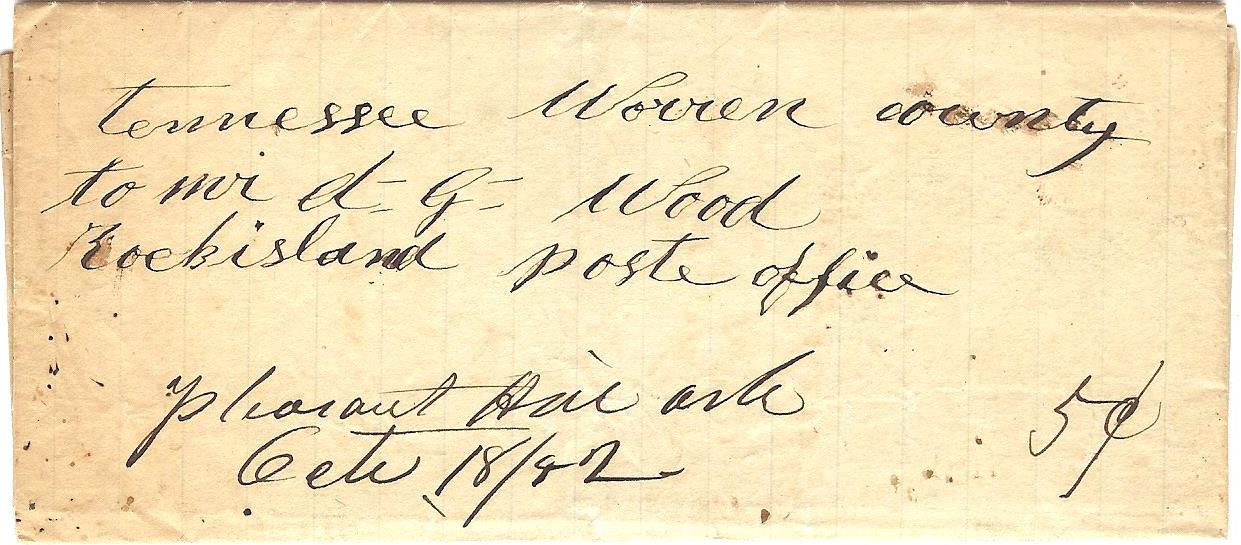 tennessee Worren county
to mr A- G- Wood
Rockisland poste office
Pleasant Hill ark 5¢
Octr 18/52